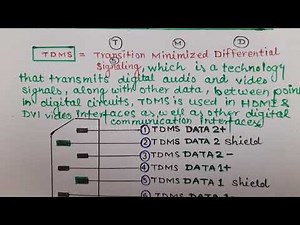 T M D
TDMS = Transition Minimized Differential
S
Signaling, which is a technology
that transmits digital audio and video
signals, along with other data, between point
in digital circuits, TDMS is used in HDMI &
DVI video interfaces as well as other digital
communication interfaces
1 TDMS DATA 2+
2 TDMS DATA 2 shield
3 TDMS DATA 2-
4 TDMS DATA 1+
5 TDMS DATA 1 shield